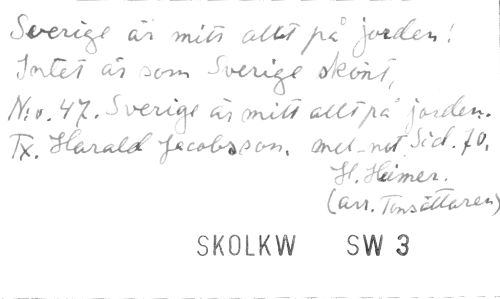 Sverige är mitt allt på jorden!
Intet är som Sverige skönt,
N:o. 47. Sverige är mitt allt på jorden.
Tx. Harald Jacobsson. mel-not Sid. 70.
H. Heimer.
(arr. Tonsättaren)
SKOLKW SW 3